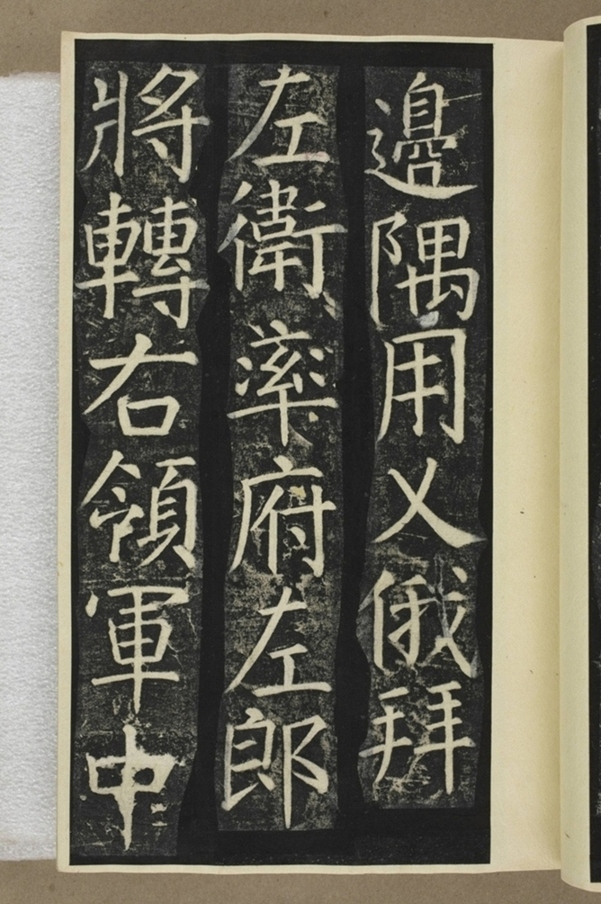 邊隅用乂俄拜
左衛率府左郎
將轉右領軍中